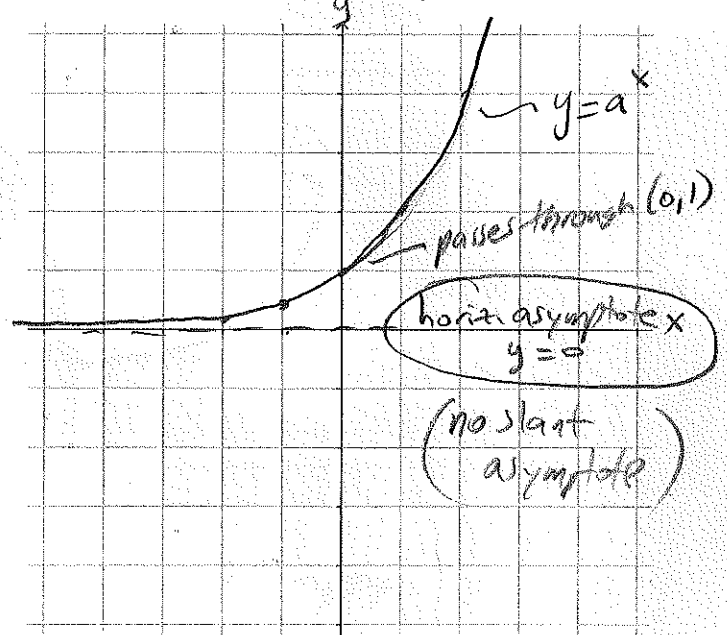 y
y=a^x
passes through (0,1)
horiz. asymptote x
y=0
(no slant
asymptote)